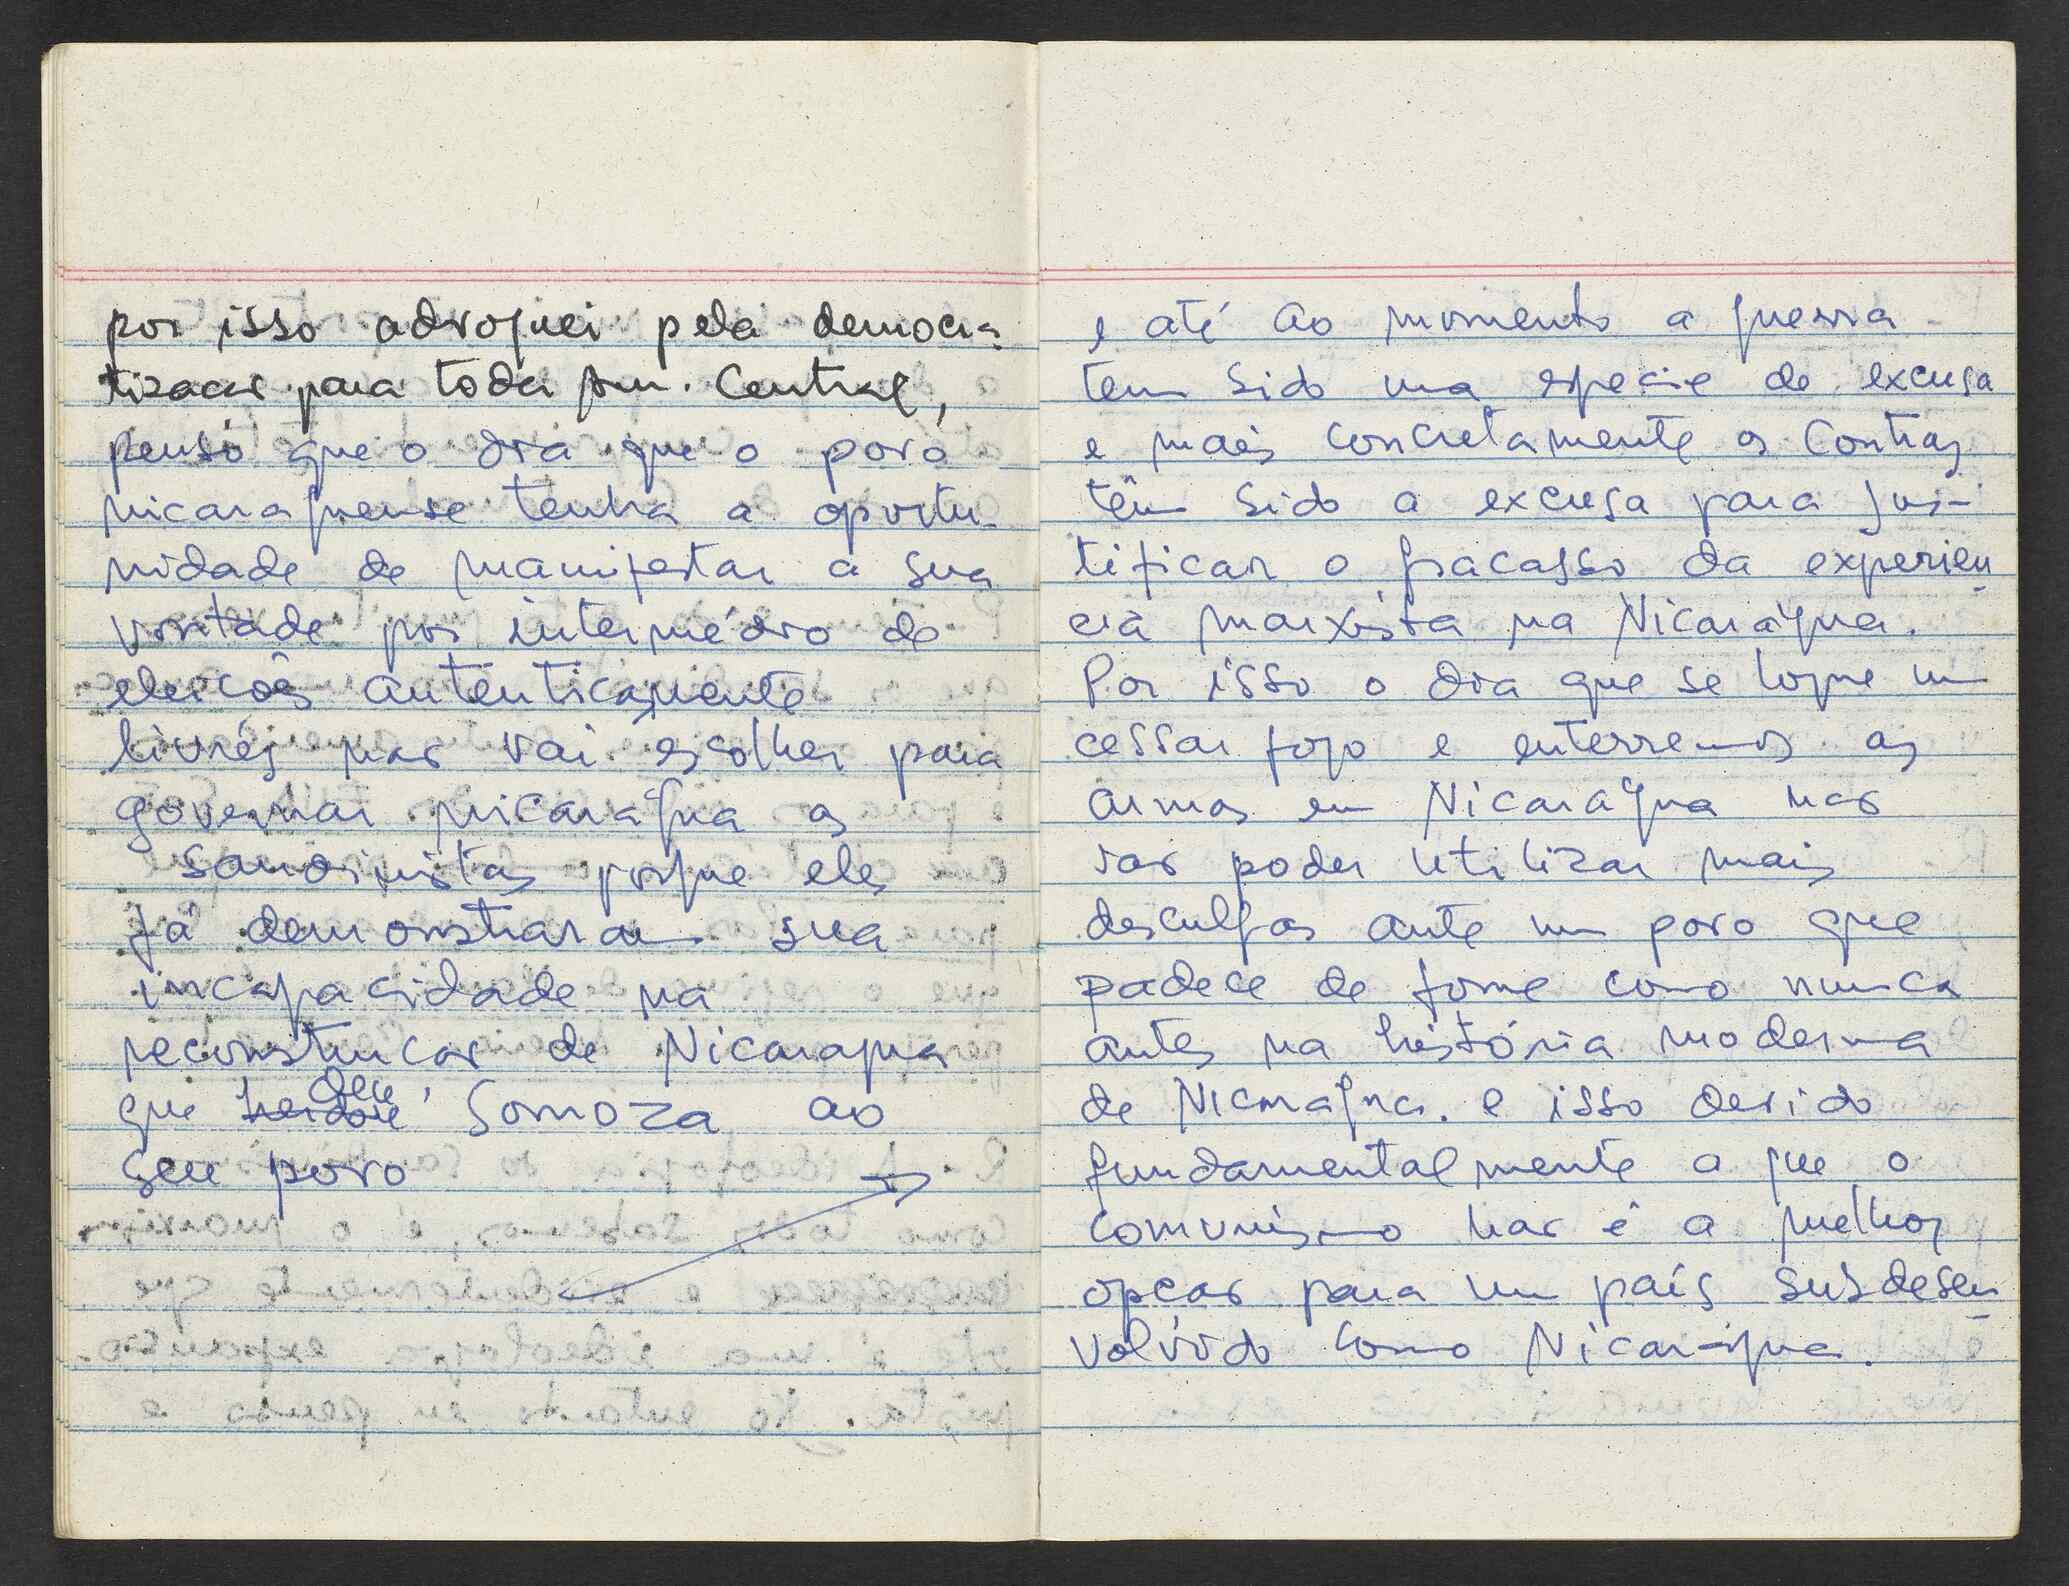 por isso advoguei pela democra-
tizacao para toda Am. Central,
penso que o dia que o povo
nicaraguense tenha a oportu-
nidade de manifestar a sua
vontade por intermédio de
eleicoẽs autenticamente
livres nao vai escolher para
governar nicarágua os
sandinistas porque eles
já demonstraram sua
incapacidade na
reconstrucao de Nicaragua
que herdou deu Somoza ao
seu povo
e até ao momento a guerra
tem sido uma especie de excusa
e mais concretamente os Contras
têm sido a excusa para jus-
tificar o fracasso da experien-
cia marxista na Nicarágua.
Por isso o dia que se logre um
cessar fogo e enterremos as
armas em Nicarágua nao
vao poder utilizar mais
desculpas ante um povo que
padece de fome como nunca
antes na história moderna
de Nicaragua. e isso devido
fundamentalmente a que o
comunismo nao é a melhor
opcao para um país subdesen-
volvido como Nicaragua.